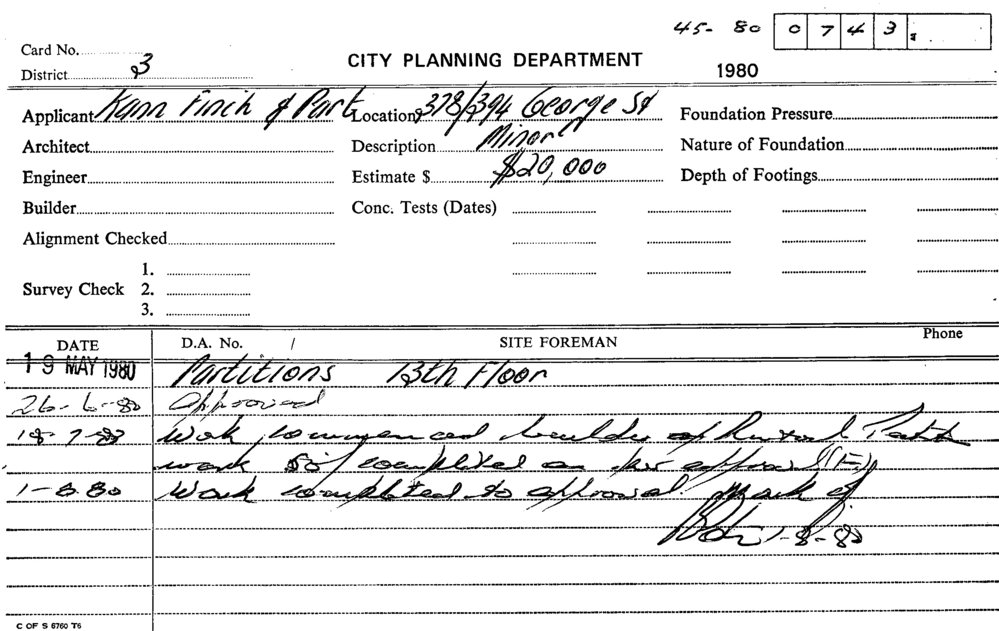 45- 80 0 7 4 3
Card No.
District 3
CITY PLANNING DEPARTMENT
1980
Applicant Kann Finch & Part Location 378/394 George St Foundation Pressure
Architect Description Minor Nature of Foundation
Engineer Estimate $ $20,000 Depth of Footings
Builder Conc. Tests (Dates)
Alignment Checked
1.
Survey Check 2.
3.
DATE D.A. No. / SITE FOREMAN Phone
19 MAY 1980 Partitions 13th Floor
26-6-80 Approved
18-7-80 Work commenced builder
work 50% completed as per approval (F.)
1-8-80 Work completed to approval. Mark of
1-8-80
C OF S 6760 T6